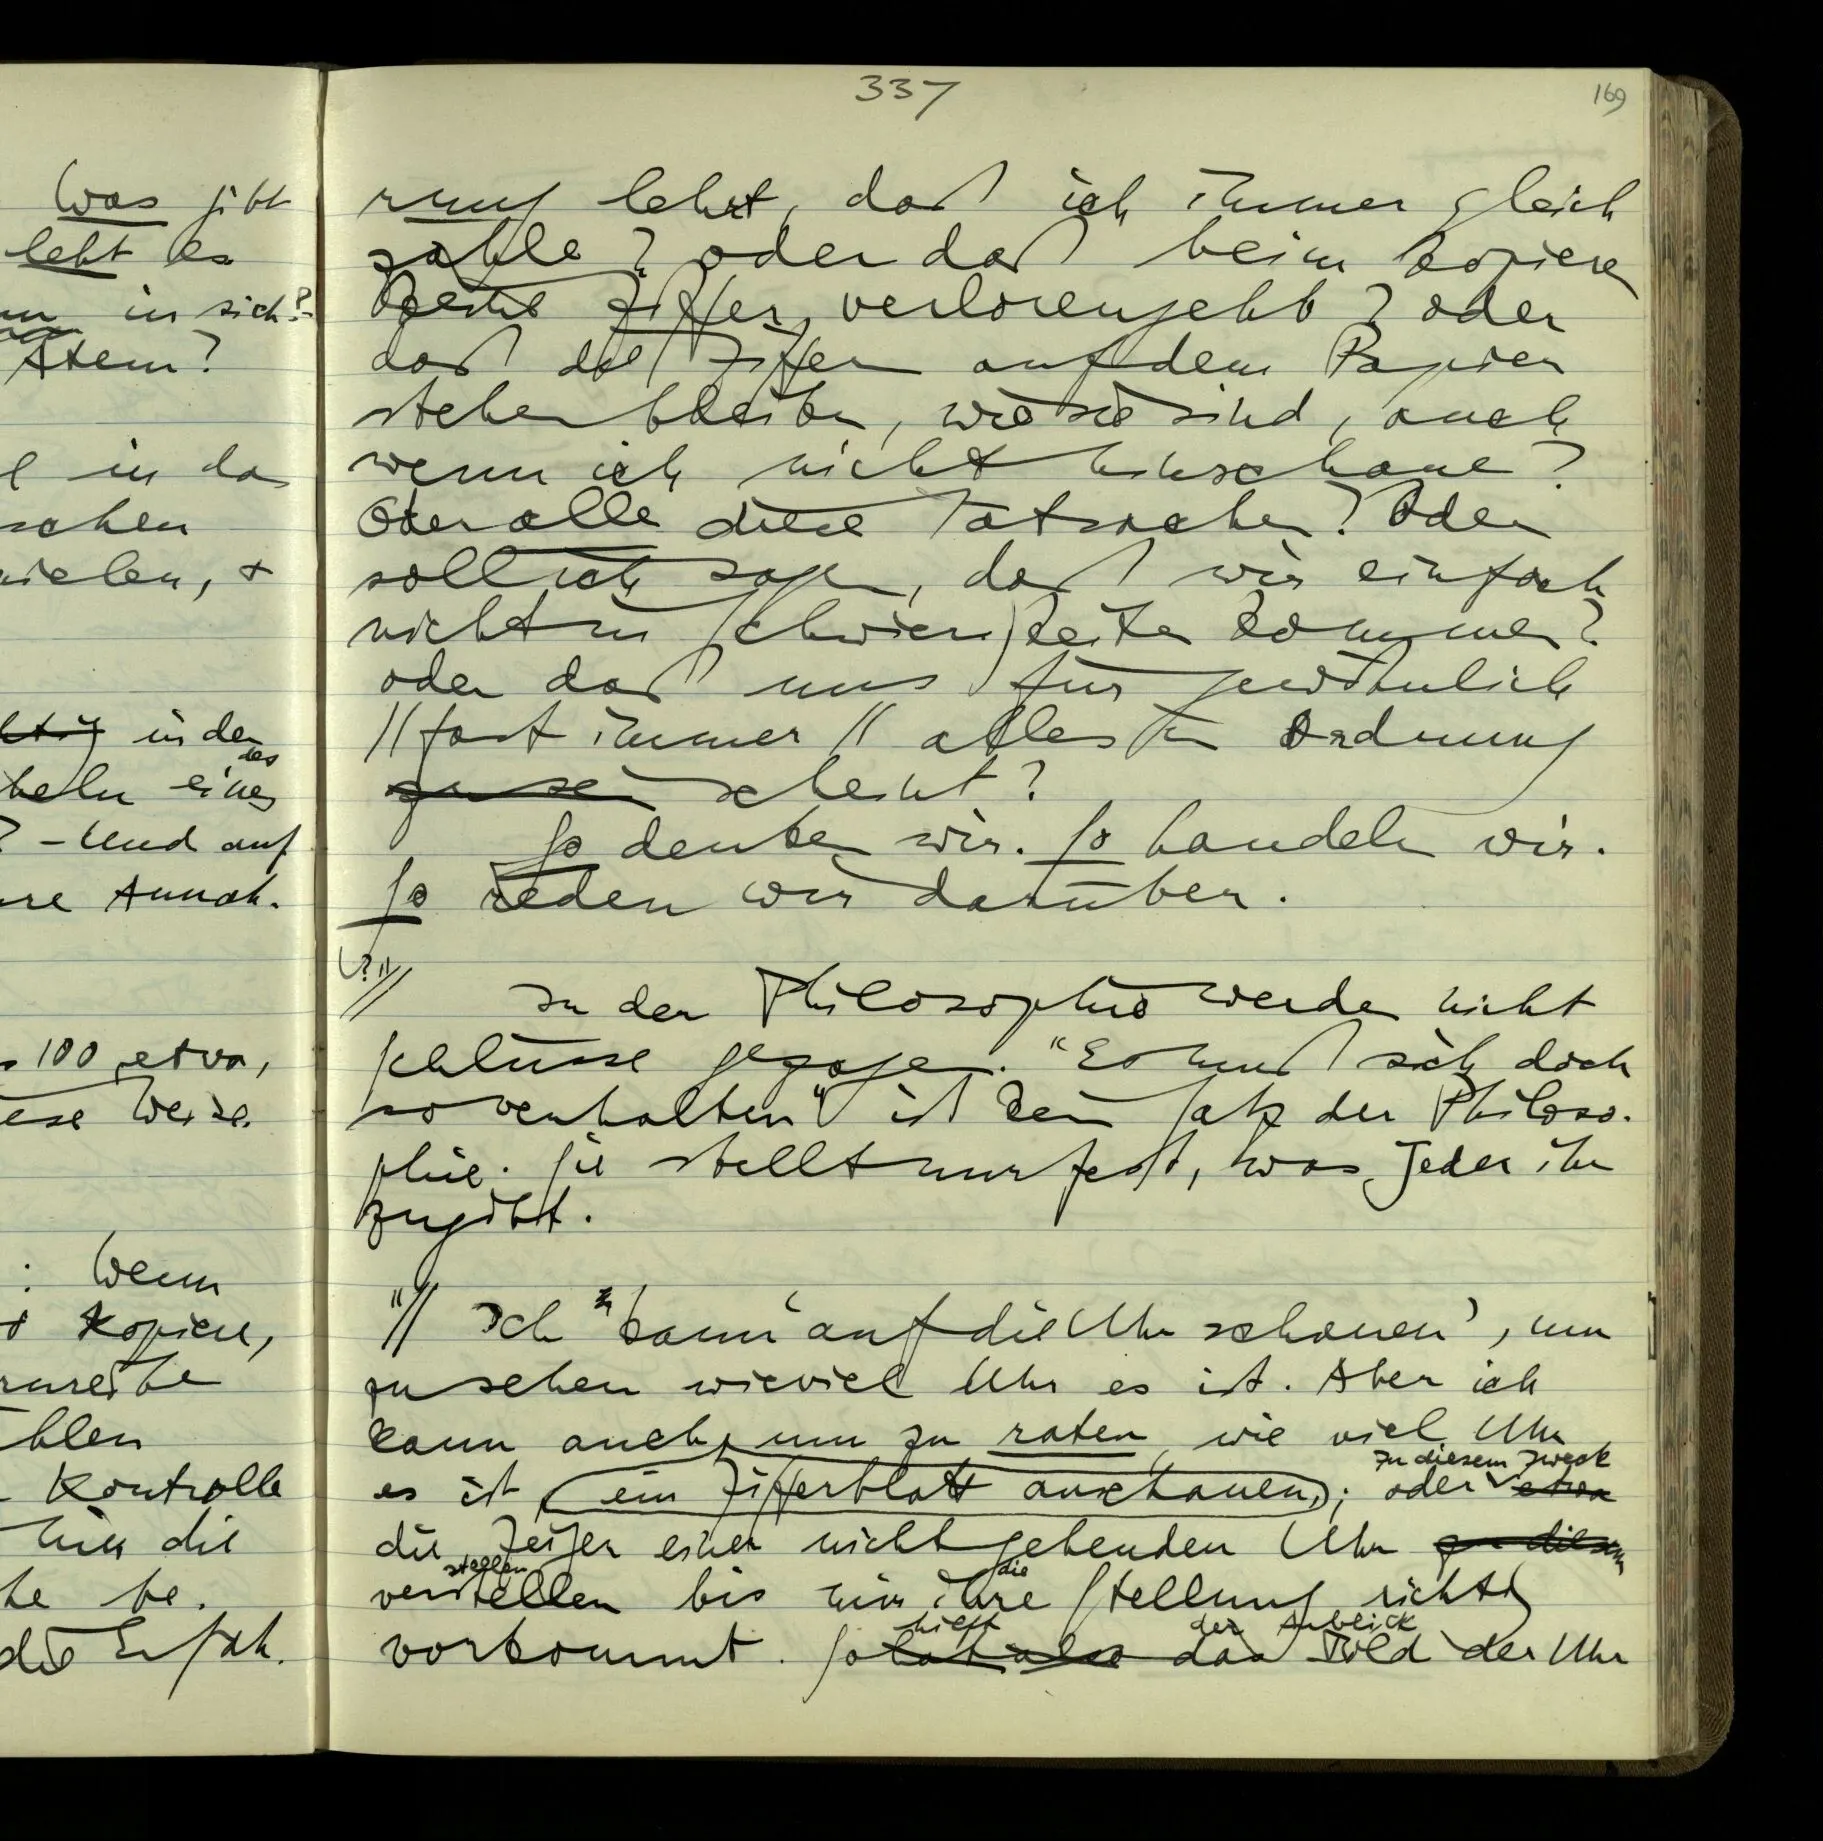 Was gibt
lebt es
in sich?
Atem?
in da
schen
ielen, +
in der
des
heln eines
? – Und auf
re Annah-
100 etwa,
ese Weise
: Wenn
Kopiere,
hlen
Kontrolle
hin die
he be-
die Erfah-
337
169
rung lehrt, daß ich immer gleich
zähle? oder daß beim Kopieren
keine Ziffer verlorengeht? oder
daß die Ziffern auf dem Papier
stehen bleiben, wie sie sind, auch
wenn ich nicht hinschaue?
Oder alle diese Tatsachen? Oder
soll ich sagen, daß wir einfach
nicht in Schwierigkeiten kommen?
oder daß uns für gewöhnlich
// fast immer // alles in Ordnung
zu sein scheint?
So denken wir. So handeln wir.
So reden wir darüber.
? "//
In der Philosophie werden nicht
Schlüsse gezogen. “Es muß sich doch
so verhalten” ist kein Satz der Philoso-
phie. Sie stellt nur fest, was Jeder ihr
zugibt.
"// Ich kann ‘auf die Uhr schauen’, um
zu sehen wieviel Uhr es ist. Aber ich
kann auch, um zu raten, wie viel Uhr
zu diesem Zweck
es ist, (ein Zifferblatt anschauen,); oder etwa
die Zeiger einer nicht gehenden Uhr zu diesem
stellen die
verstellen bis mir ihre Stellung richtig
hilft der Anblick
vorkommt. So hat also das Bild der Uhr